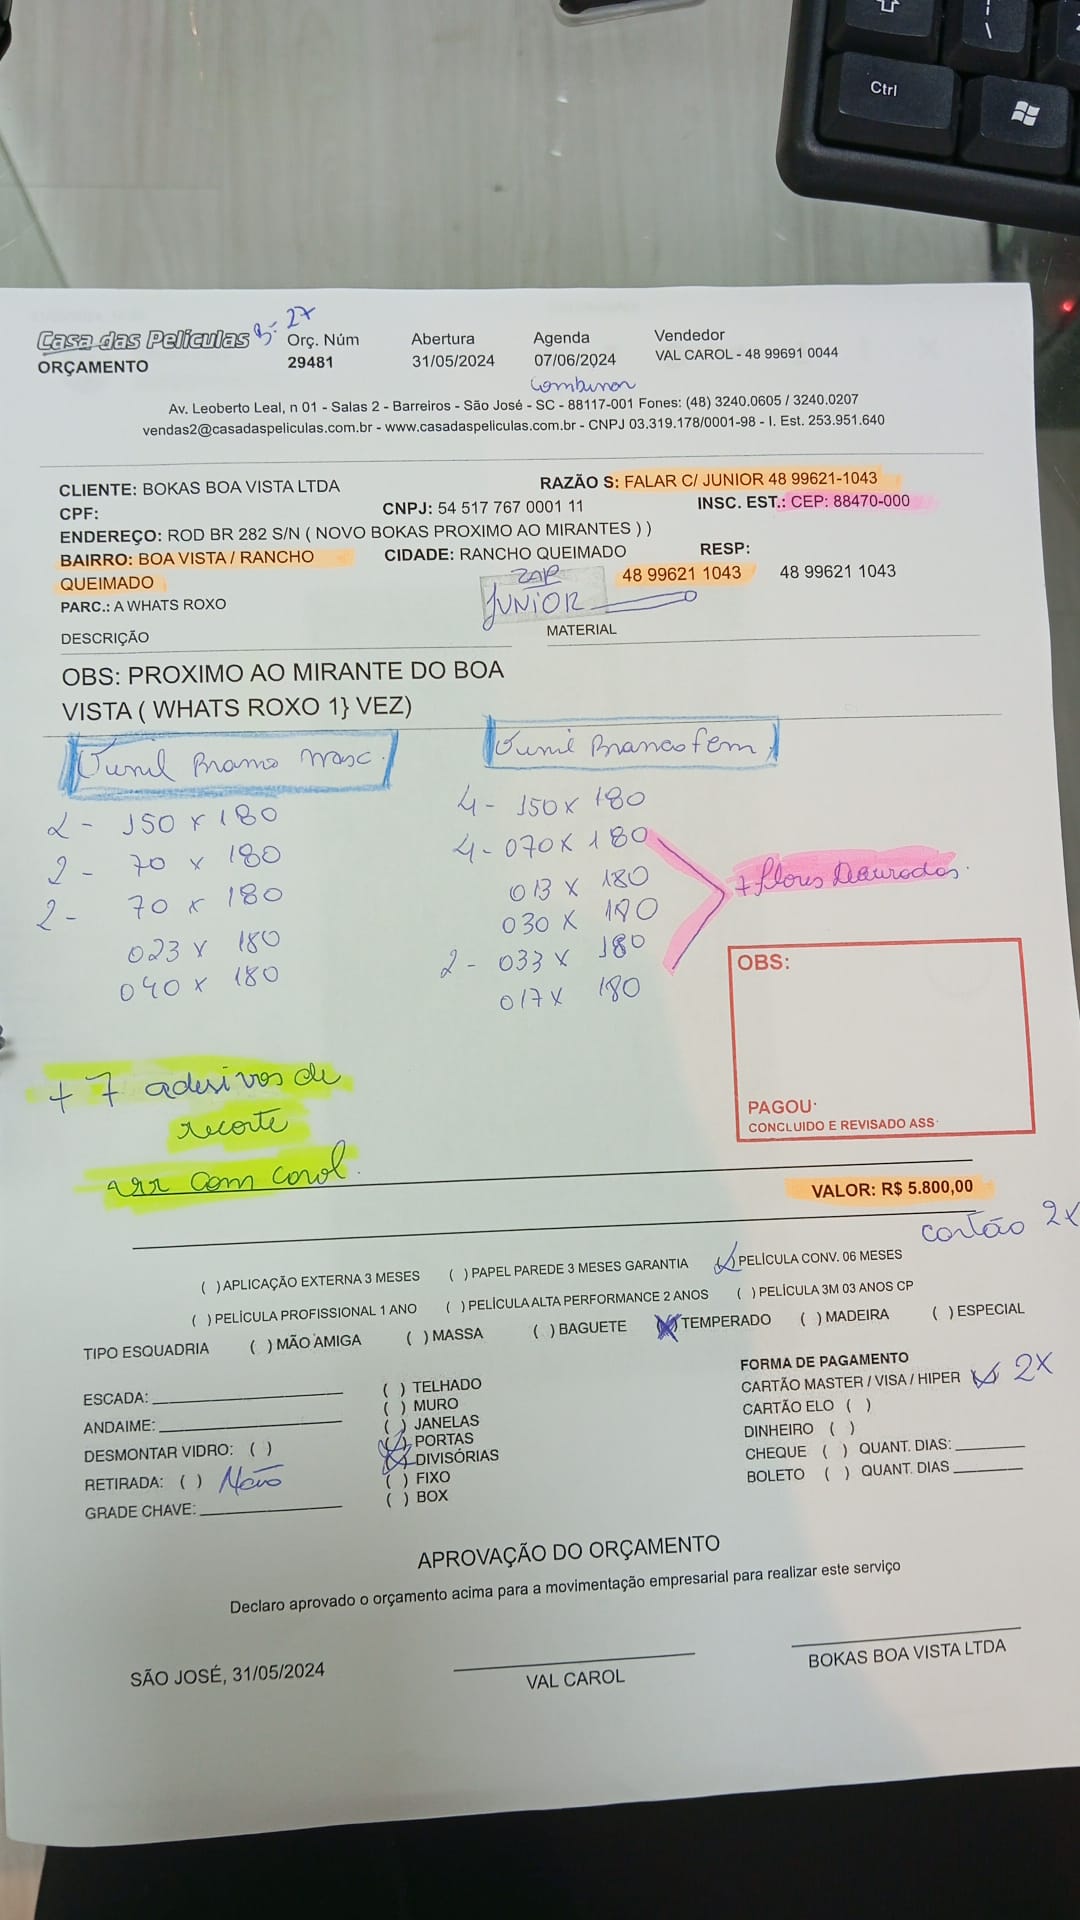 Ctrl
27
Casa das Películas
ORÇAMENTO
Orç. Núm
29481
Abertura
31/05/2024
Agenda
07/06/2024
Combinar
Vendedor
VAL CAROL - 48 99691 0044
Av. Leoberto Leal, n 01 - Salas 2 - Barreiros - São José - SC - 88117-001 Fones: (48) 3240.0605 / 3240.0207
vendas2@casadaspeliculas.com.br - www.casadaspeliculas.com.br - CNPJ 03.319.178/0001-98 - I. Est. 253.951.640
CLIENTE: BOKAS BOA VISTA LTDA
RAZÃO S: FALAR C/ JUNIOR 48 99621-1043
CPF:
CNPJ: 54 517 767 0001 11
INSC. EST.: CEP: 88470-000
ENDEREÇO: ROD BR 282 S/N ( NOVO BOKAS PROXIMO AO MIRANTES ) )
BAIRRO: BOA VISTA / RANCHO
QUEIMADO
CIDADE: RANCHO QUEIMADO
RESP:
ZAP
48 99621 1043
48 99621 1043
PARC.: A WHATS ROXO
JUNIOR
DESCRIÇÃO
MATERIAL
OBS: PROXIMO AO MIRANTE DO BOA
VISTA ( WHATS ROXO 1} VEZ)
Junil Branco masc.
2 - 150 x 180
2 - 70 x 180
2 - 70 x 180
023 x 180
040 x 180
Junil Branco fem
4 - 150 x 180
4 - 070 x 180
013 x 180
030 x 180
2 - 033 x 180
017 x 180
+ flores Douradas.
+ 7 adesivos de
recorte
com carol.
OBS:
PAGOU:
CONCLUIDO E REVISADO ASS:
VALOR: R$ 5.800,00
cartão 2x
( ) APLICAÇÃO EXTERNA 3 MESES ( ) PAPEL PAREDE 3 MESES GARANTIA ( ) PELÍCULA CONV. 06 MESES
( ) PELÍCULA PROFISSIONAL 1 ANO ( ) PELÍCULA ALTA PERFORMANCE 2 ANOS ( ) PELÍCULA 3M 03 ANOS CP
TIPO ESQUADRIA ( ) MÃO AMIGA ( ) MASSA ( ) BAGUETE (X) TEMPERADO ( ) MADEIRA ( ) ESPECIAL
ESCADA:
ANDAIME:
DESMONTAR VIDRO: ( )
RETIRADA: ( ) Não
GRADE CHAVE:
( ) TELHADO
( ) MURO
( ) JANELAS
(X) PORTAS
(X) DIVISÓRIAS
( ) FIXO
( ) BOX
FORMA DE PAGAMENTO
CARTÃO MASTER / VISA / HIPER ( ) 2x
CARTÃO ELO ( )
DINHEIRO ( )
CHEQUE ( ) QUANT. DIAS:
BOLETO ( ) QUANT. DIAS
APROVAÇÃO DO ORÇAMENTO
Declaro aprovado o orçamento acima para a movimentação empresarial para realizar este serviço
SÃO JOSÉ, 31/05/2024
VAL CAROL
BOKAS BOA VISTA LTDA